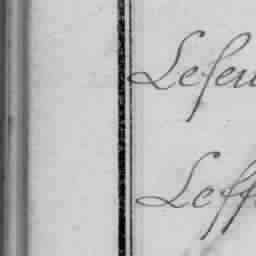 Lefeu
Leff